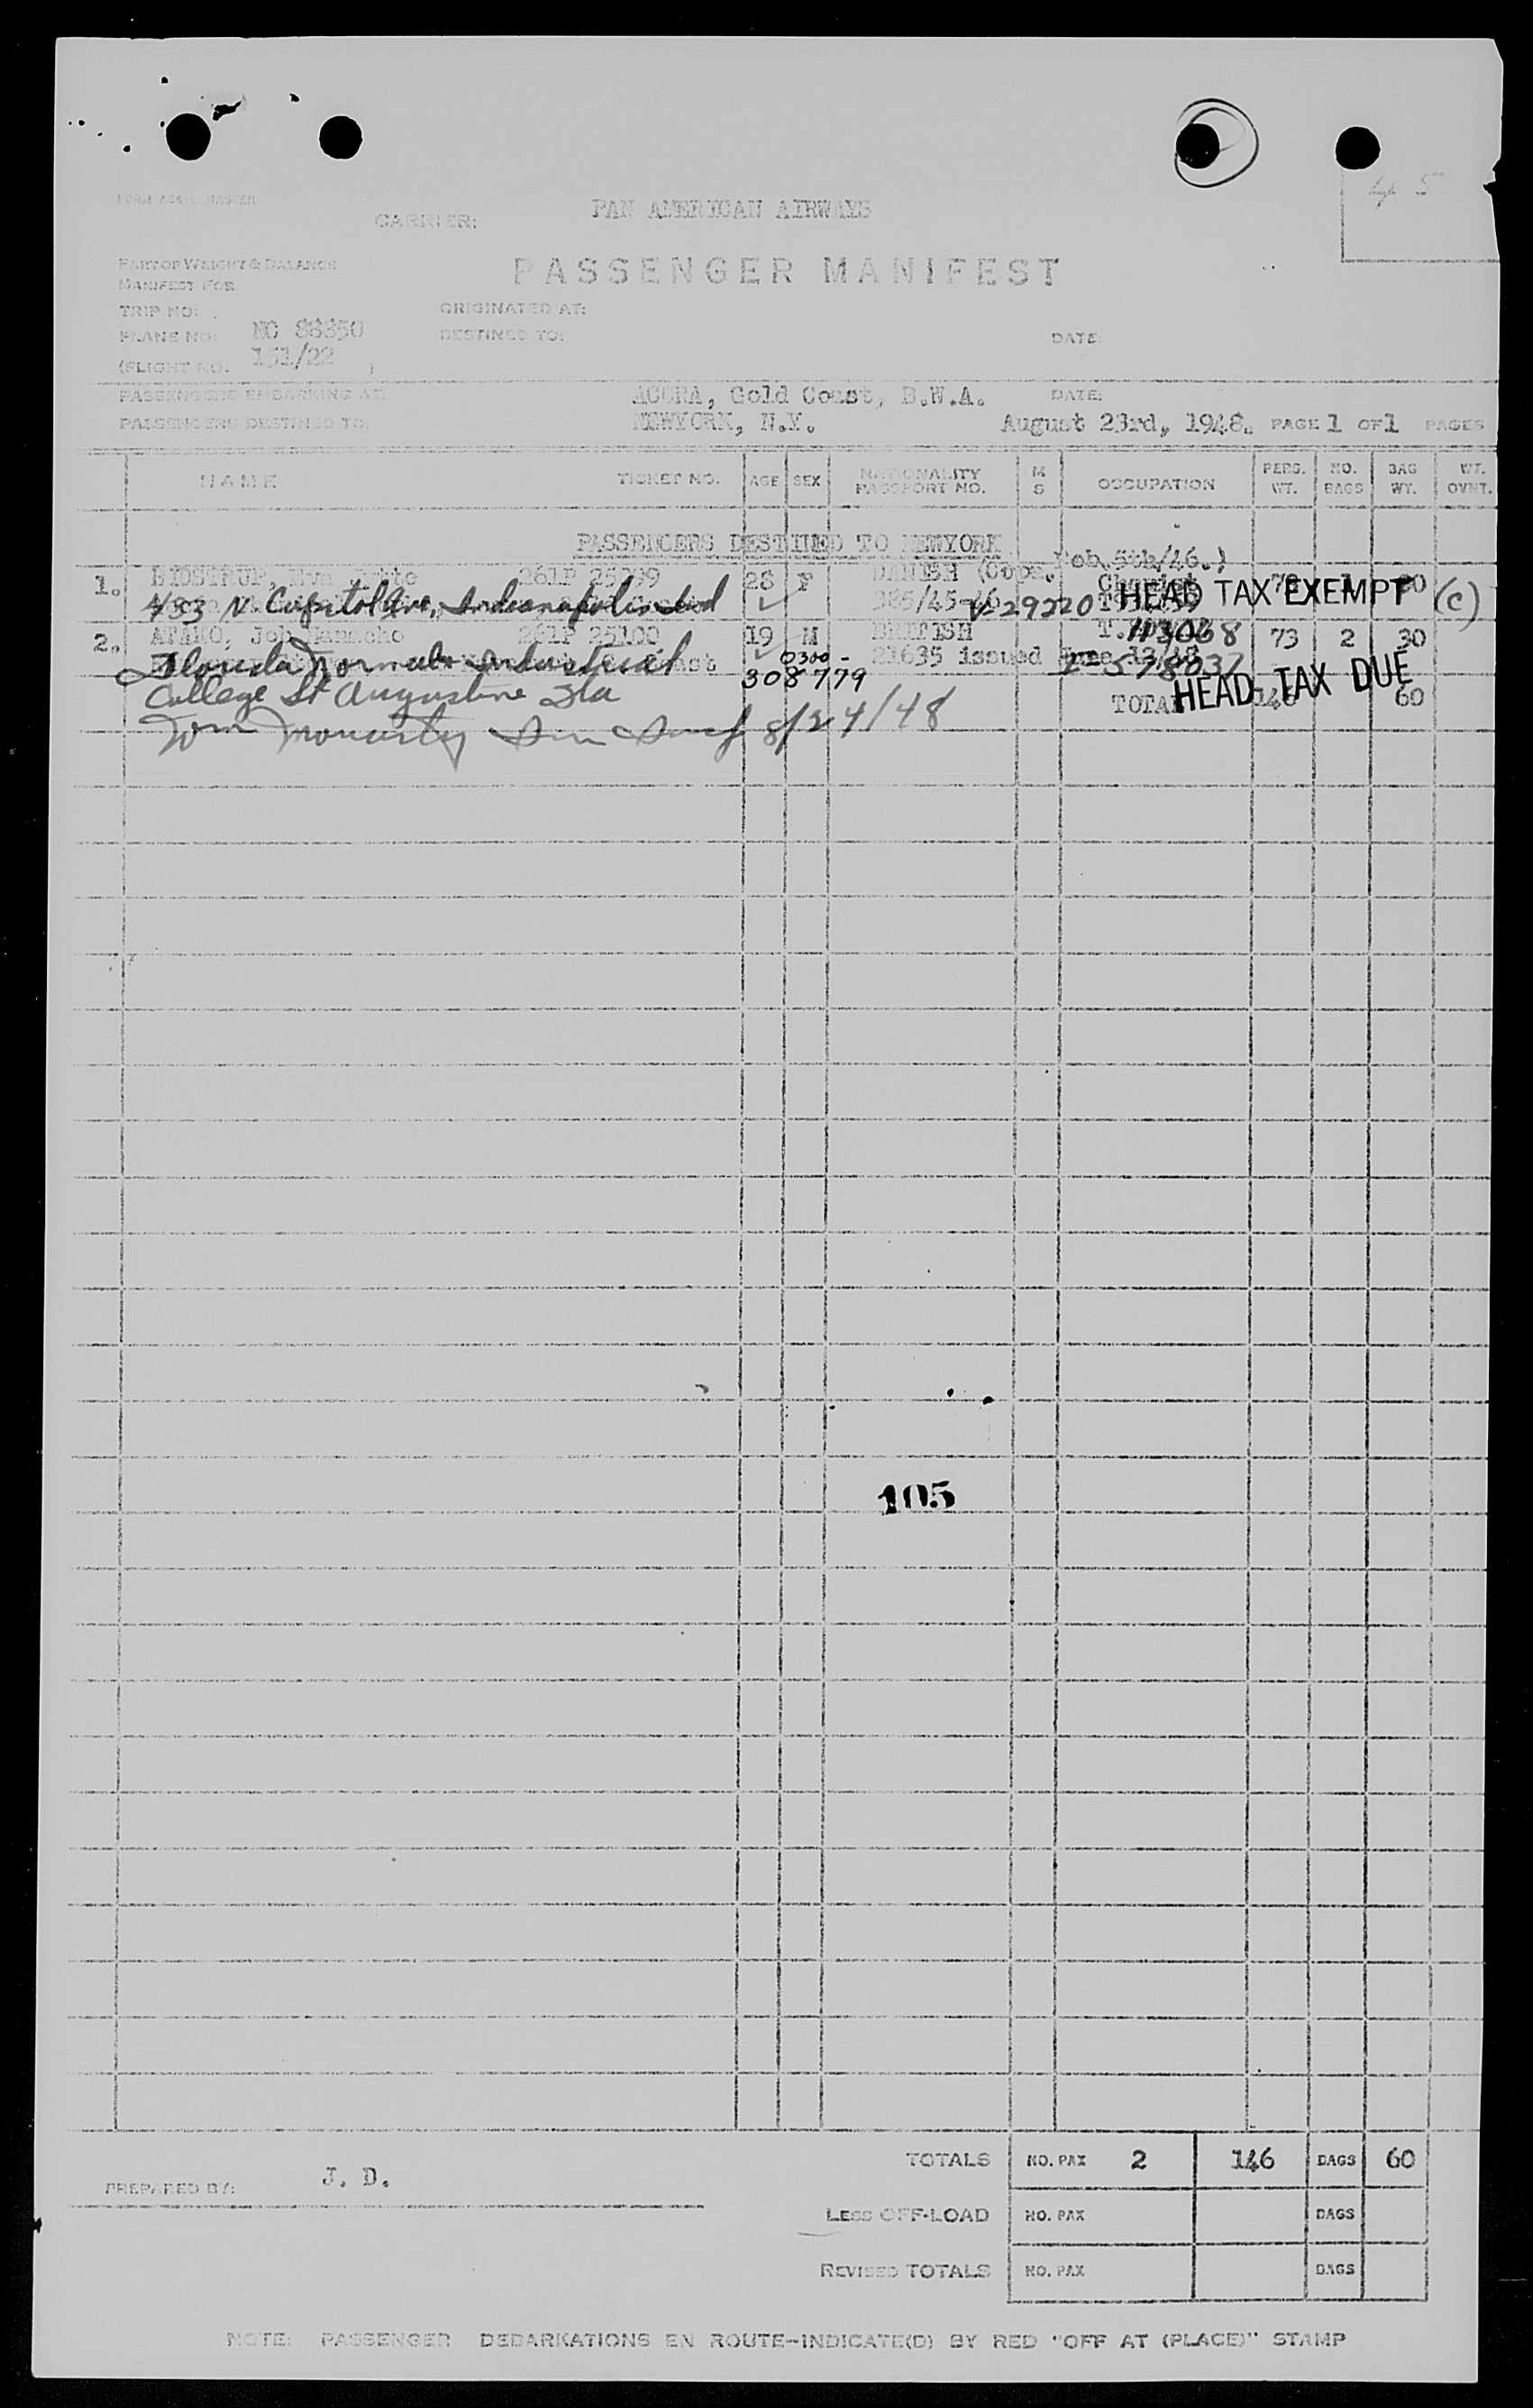 CARRIER: PAN AMERICAN AIRWAYS
45
PART OF WEIGHT & BALANCE
MANIFEST FOR
PASSENGER MANIFEST
TRIP NO: ORIGINATED AT:
PLANE NO: NC 88850 DESTINED TO: DATE:
(FLIGHT NO. 151/22 )
PASSENGERS EMBARKING AT: ACCRA, Gold Coast, B.W.A. DATE:
PASSENGERS DESTINED TO: NEWYORK, N.Y. August 23rd, 1948. PAGE 1 OF 1 PAGES
NAME TICKET NO. AGE SEX NATIONALITY PASSPORT NO. M S OCCUPATION PERS. WT. NO. BAGS BAG WT. WT. OVNT.
PASSENGERS DESTINED TO NEWYORK
1. Eva 261P 25099 28 F DANISH (Copn. Feb. 5th/46.) Chemist
433 N. Capitol Ave, Indianapolis Ind 385/45-46 V-29220 HEAD TAX EXEMPT (C)
2. Job 261P 25100 19 M BRITISH 113068 73 2 30
Florida Normal Industrial 0300- 21635 issued June 578037
College St Augustine Fla 308779 TOTAL HEAD TAX DUE 146 60
8/24/48
105
TOTALS NO. PAX 2 146 BAGS 60
PREPARED BY: J. D.
LESS OFF-LOAD NO. PAX BAGS
REVISED TOTALS NO. PAX BAGS
NOTE: PASSENGER DEBARKATIONS EN ROUTE-INDICATE(D) BY RED "OFF AT (PLACE)" STAMP